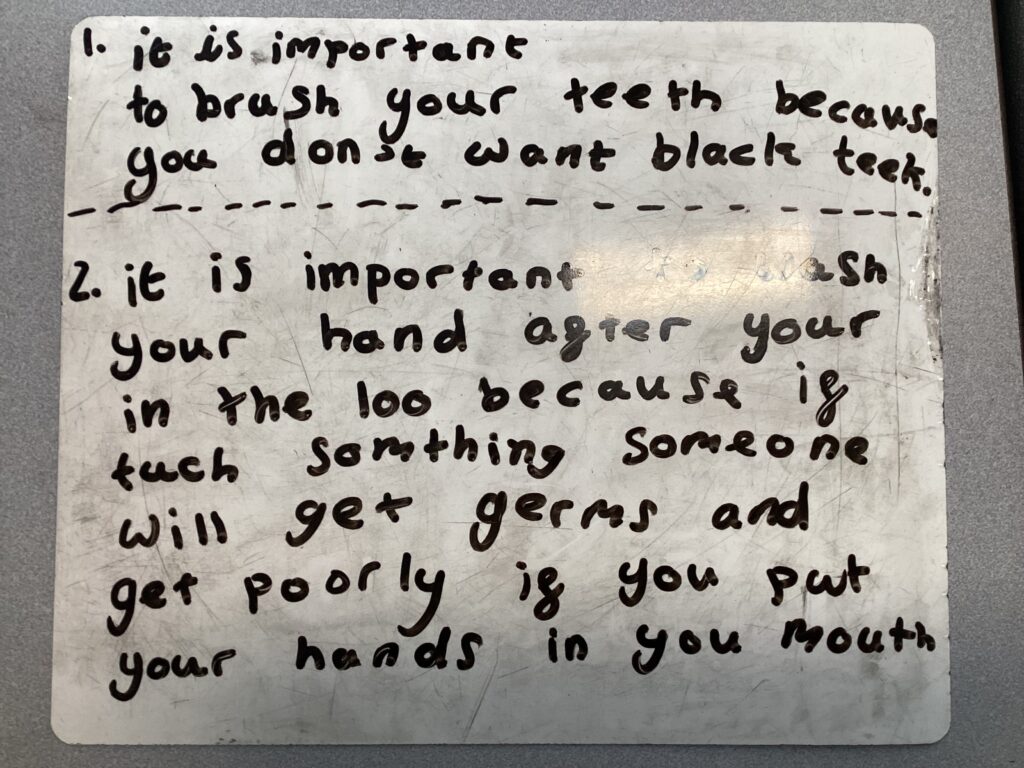 1. it is important
to brush your teeth because
you don't want black teeh.
2. it is important to wash
your hand after your
in the loo because if
tuch somthing someone
will get germs and
get poorly if you put
your hands in you mouth